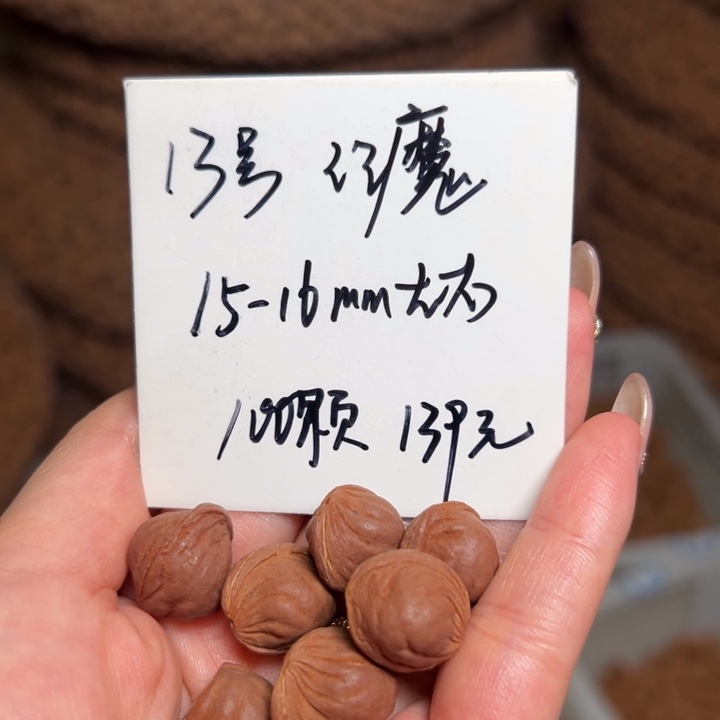 13号 红魔
15-16mm左右
100颗 139元